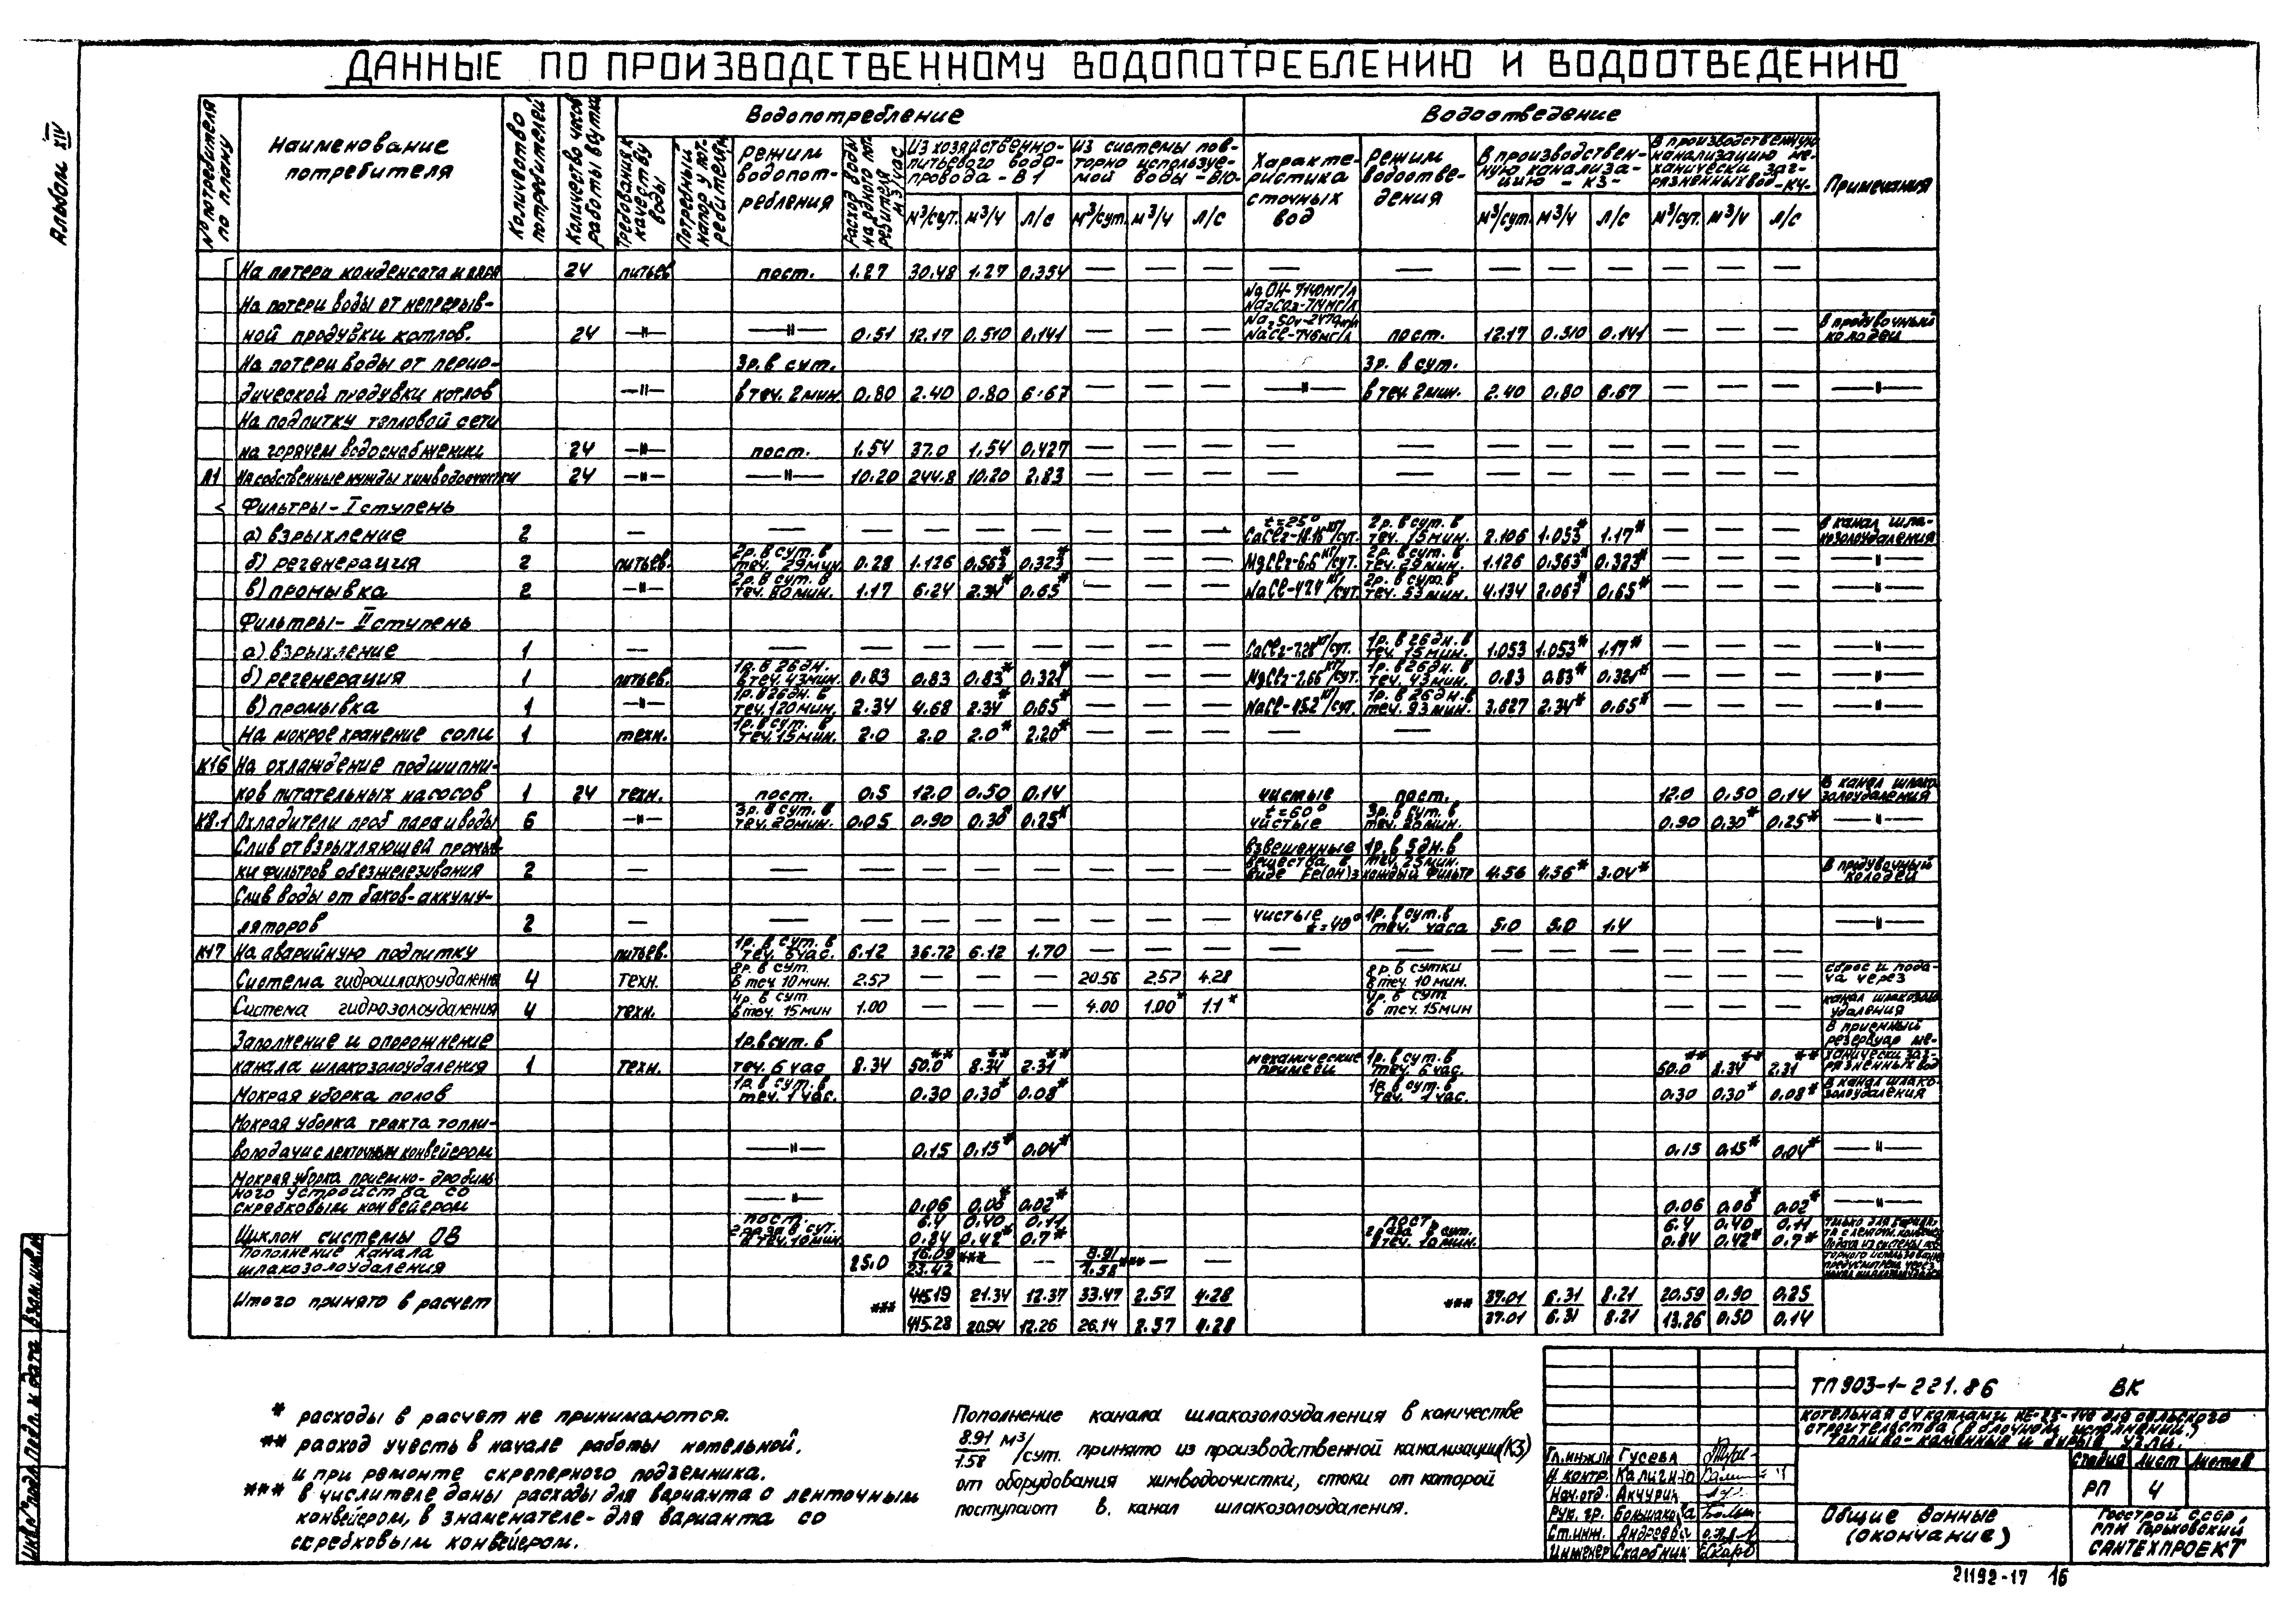 Альбом XIV
ДАННЫЕ ПО ПРОИЗВОДСТВЕННОМУ ВОДОПОТРЕБЛЕНИЮ И ВОДООТВЕДЕНИЮ
№ потребителя по плану
Наименование потребителя
Количество потребителей
Количество часов работы в сутки
Водопотребление
Требования к качеству воды
Потребный напор у потребителя
Режим водопотребления
Расход воды на одного потребителя м3/час
Из хозяйственно-питьевого водопровода - В1
м³/сут. м³/ч л/с
Из системы повторно используемой воды - В10
м³/сут. м³/ч л/с
Водоотведение
Характеристика сточных вод
Режим водоотведения
В производственную канализацию - К3
м³/сут. м³/ч л/с
В производственную канализацию механически загрязненных вод - К4
м³/сут. м³/ч л/с
Примечания
На потери конденсата и пара 24 питьев. пост. 1.27 30.48 1.27 0.354 — — — — — — — — — — —
На потери воды от непрерыв-
ной продувки котлов. 24 —"— —"— 0.51 12.17 0.510 0.141 — — — NaOH-7140мг/л Na2CO3-714мг/л NaCl-746мг/л пост. 12.17 0.510 0.141 — — — в продувочный колодец
На потери воды от перио-
дической продувки котлов —"— 3р. в сут. в теч. 2 мин. 0.80 2.40 0.80 6.67 — — — —"— 3р. в сут. в теч. 2 мин. 2.40 0.80 6.67 — — — —"—
На подпитку тепловой сети
на горячем водоснабжении 24 —"— пост. 1.54 37.0 1.54 0.427 — — — — — — — — — — —
А1 На собственные нужды химводоочистки 24 —"— —"— 10.20 244.8 10.20 2.83 — — — — — — — — — — —
Фильтры - I ступень
а) взрыхление 2 — — — — — — — — — t=25° 2р. в сут. в теч. 15 мин. 2.106 1.053* 1.17* — — — в канал шлакозолоудаления
б) регенерация 2 питьев. 2р. в сут. в теч. 29 мин. 0.28 1.126 0.563* 0.323* — — — MgCl2-6.6 кг/сут. 2р. в сут. в теч. 29 мин. 1.126 0.563* 0.323* — — — —"—
в) промывка 2 —"— 2р. в сут. в теч. 80 мин. 1.17 6.24 2.34* 0.65* — — — 2р. в сут. в теч. 53 мин. 4.134 2.067* 0.65* — — — —"—
Фильтры - II ступень
а) взрыхление 1 — — — — — — — — — CaCl2-7.28 кг/сут. 1р. в 26 дн. в теч. 15 мин. 1.053 1.053* 1.17* — — — —"—
б) регенерация 1 питьев. 1р. в 26 дн. в теч. 43 мин. 0.83 0.83 0.83* 0.321* — — — MgCl2-2.66 кг/сут. 1р. в 26 дн. в теч. 43 мин. 0.83 0.83* 0.321* — — — —"—
в) промывка 1 —"— 1р. в 26 дн. в теч. 120 мин. 2.34 4.68 2.34* 0.65* — — — 1р. в 26 дн. в теч. 93 мин. 3.627 2.34* 0.65* — — — —"—
На мокрое хранение соли 1 техн. 1р. в сут. в теч. 15 мин. 2.0 2.0 2.0* 2.20* — —
К16 На охлаждение подшипни-
ков питательных насосов 1 24 техн. пост. 0.5 12.0 0.50 0.14 чистые пост. 12.0 0.50 0.14 В канал шлакозолоудаления
К8.1 Охладители проб пара и воды 6 —"— 3р. в сут. в теч. 20 мин. 0.05 0.90 0.30* 0.25* t=60° чистые 3р. в сут. в теч. 20 мин. 0.90 0.30* 0.25* —"—
Слив от взрыхляющей промыв-
ки фильтров обезжелезивания 2 — — — — — — — — — взвешенные вещества в виде Fe(OH)3 1р. в 5 дн. в теч. 25 мин. каждый фильтр 4.56 4.56* 3.04* — — — В продувочный колодец
Слив воды от баков-аккуму-
ляторов 2 — — — — — — — — — чистые t=40° 1р. в сут. в теч. часа 5.0 5.0 1.4 — — — —"—
К17 На аварийную подпитку питьев. 1р. в сут. в теч. 6 час. 6.12 36.72 6.12 1.70 — — — — — — — — — — —
Система гидрошлакоудаления 4 техн. 8р. в сут. в теч 10 мин. 2.57 — — — 20.56 2.57 4.28 8р. в сутки в теч. 10 мин. сброс и подача через
Система гидрозолоудаления 4 техн. 4р. в сут в теч. 15 мин 1.00 — — — 4.00 1.00* 1.1* 4р. в сут в теч. 15 мин канал шлакозолоудаления
Заполнение и опорожнение
канала шлакозолоудаления 1 техн. 1р. в сут. в теч. 6 час 8.34 50.0** 8.34** 2.31** механические примеси 1р. в сут. в теч. 6 час. 50.0** 8.34** 2.31** В приемный резервуар механически загрязненных вод
Мокрая уборка полов 1р. в сут. в теч. 1 час. 0.30 0.30* 0.08* 1р. в сут. в теч. 1 час. 0.30 0.30* 0.08* В канал шлакозолоудаления
Мокрая уборка тракта топли-
воподачи с ленточным конвейером —"— 0.15 0.15* 0.04* 0.15 0.15* 0.04* —"—
Мокрая уборка приемно-дробиль
ного устройства со
скребковым конвейером —"— 0.06 0.06* 0.02* 0.06 0.06* 0.02* —"—
Циклон системы ОВ пост. 2 раза в сут. в теч. 10 мин. 6.4 0.40 0.11 0.84 0.42* 0.7* пост. 2 раза в сут. в теч. 10 мин. 6.4 0.40 0.11 0.84 0.42* 0.7*
Пополнение канала
шлакозолоудаления 25.0 16.09 23.42 *** — — 8.91 1.58 *** — —
Итого принято в расчет *** 415.19 21.34 12.37 33.47 2.57 4.28 *** 37.01 6.31 8.21 20.59 0.90 0.25
415.28 20.94 12.26 26.14 2.57 4.28 37.01 6.31 8.21 13.26 0.50 0.14
* расходы в расчет не принимаются.
** расход учесть в начале работы котельной.
и при ремонте скреперного подъемника.
*** в числителе даны расходы для варианта с ленточным
конвейером, в знаменателе - для варианта со
скребковым конвейером.
Пополнение канала шлакозолоудаления в количестве
8.91
1.58 м³/сут. принято из производственной канализации (К3)
от оборудования химводоочистки, стоки от которой
поступают в канал шлакозолоудаления.
ТП 903-1-221.86 ВК
Котельная с 4 котлами КЕ-25-14С для сельского
строительства (в блочном исполнении.)
Топливо - каменные и бурые угли.
Гл.инж.пр Гусева
Н. контр. Калигина
Нач.отд. Акчурин
Рук. гр. Большакова
Ст.инж. Андреева
Инженер Скарбник
Стадия Лист Листов
РП 4
Общие данные
(окончание)
Госстрой СССР,
ГПИ Горьковский
САНТЕХПРОЕКТ
21192-17 16
Инв.№ подл. Подп. и дата Взам.инв.№